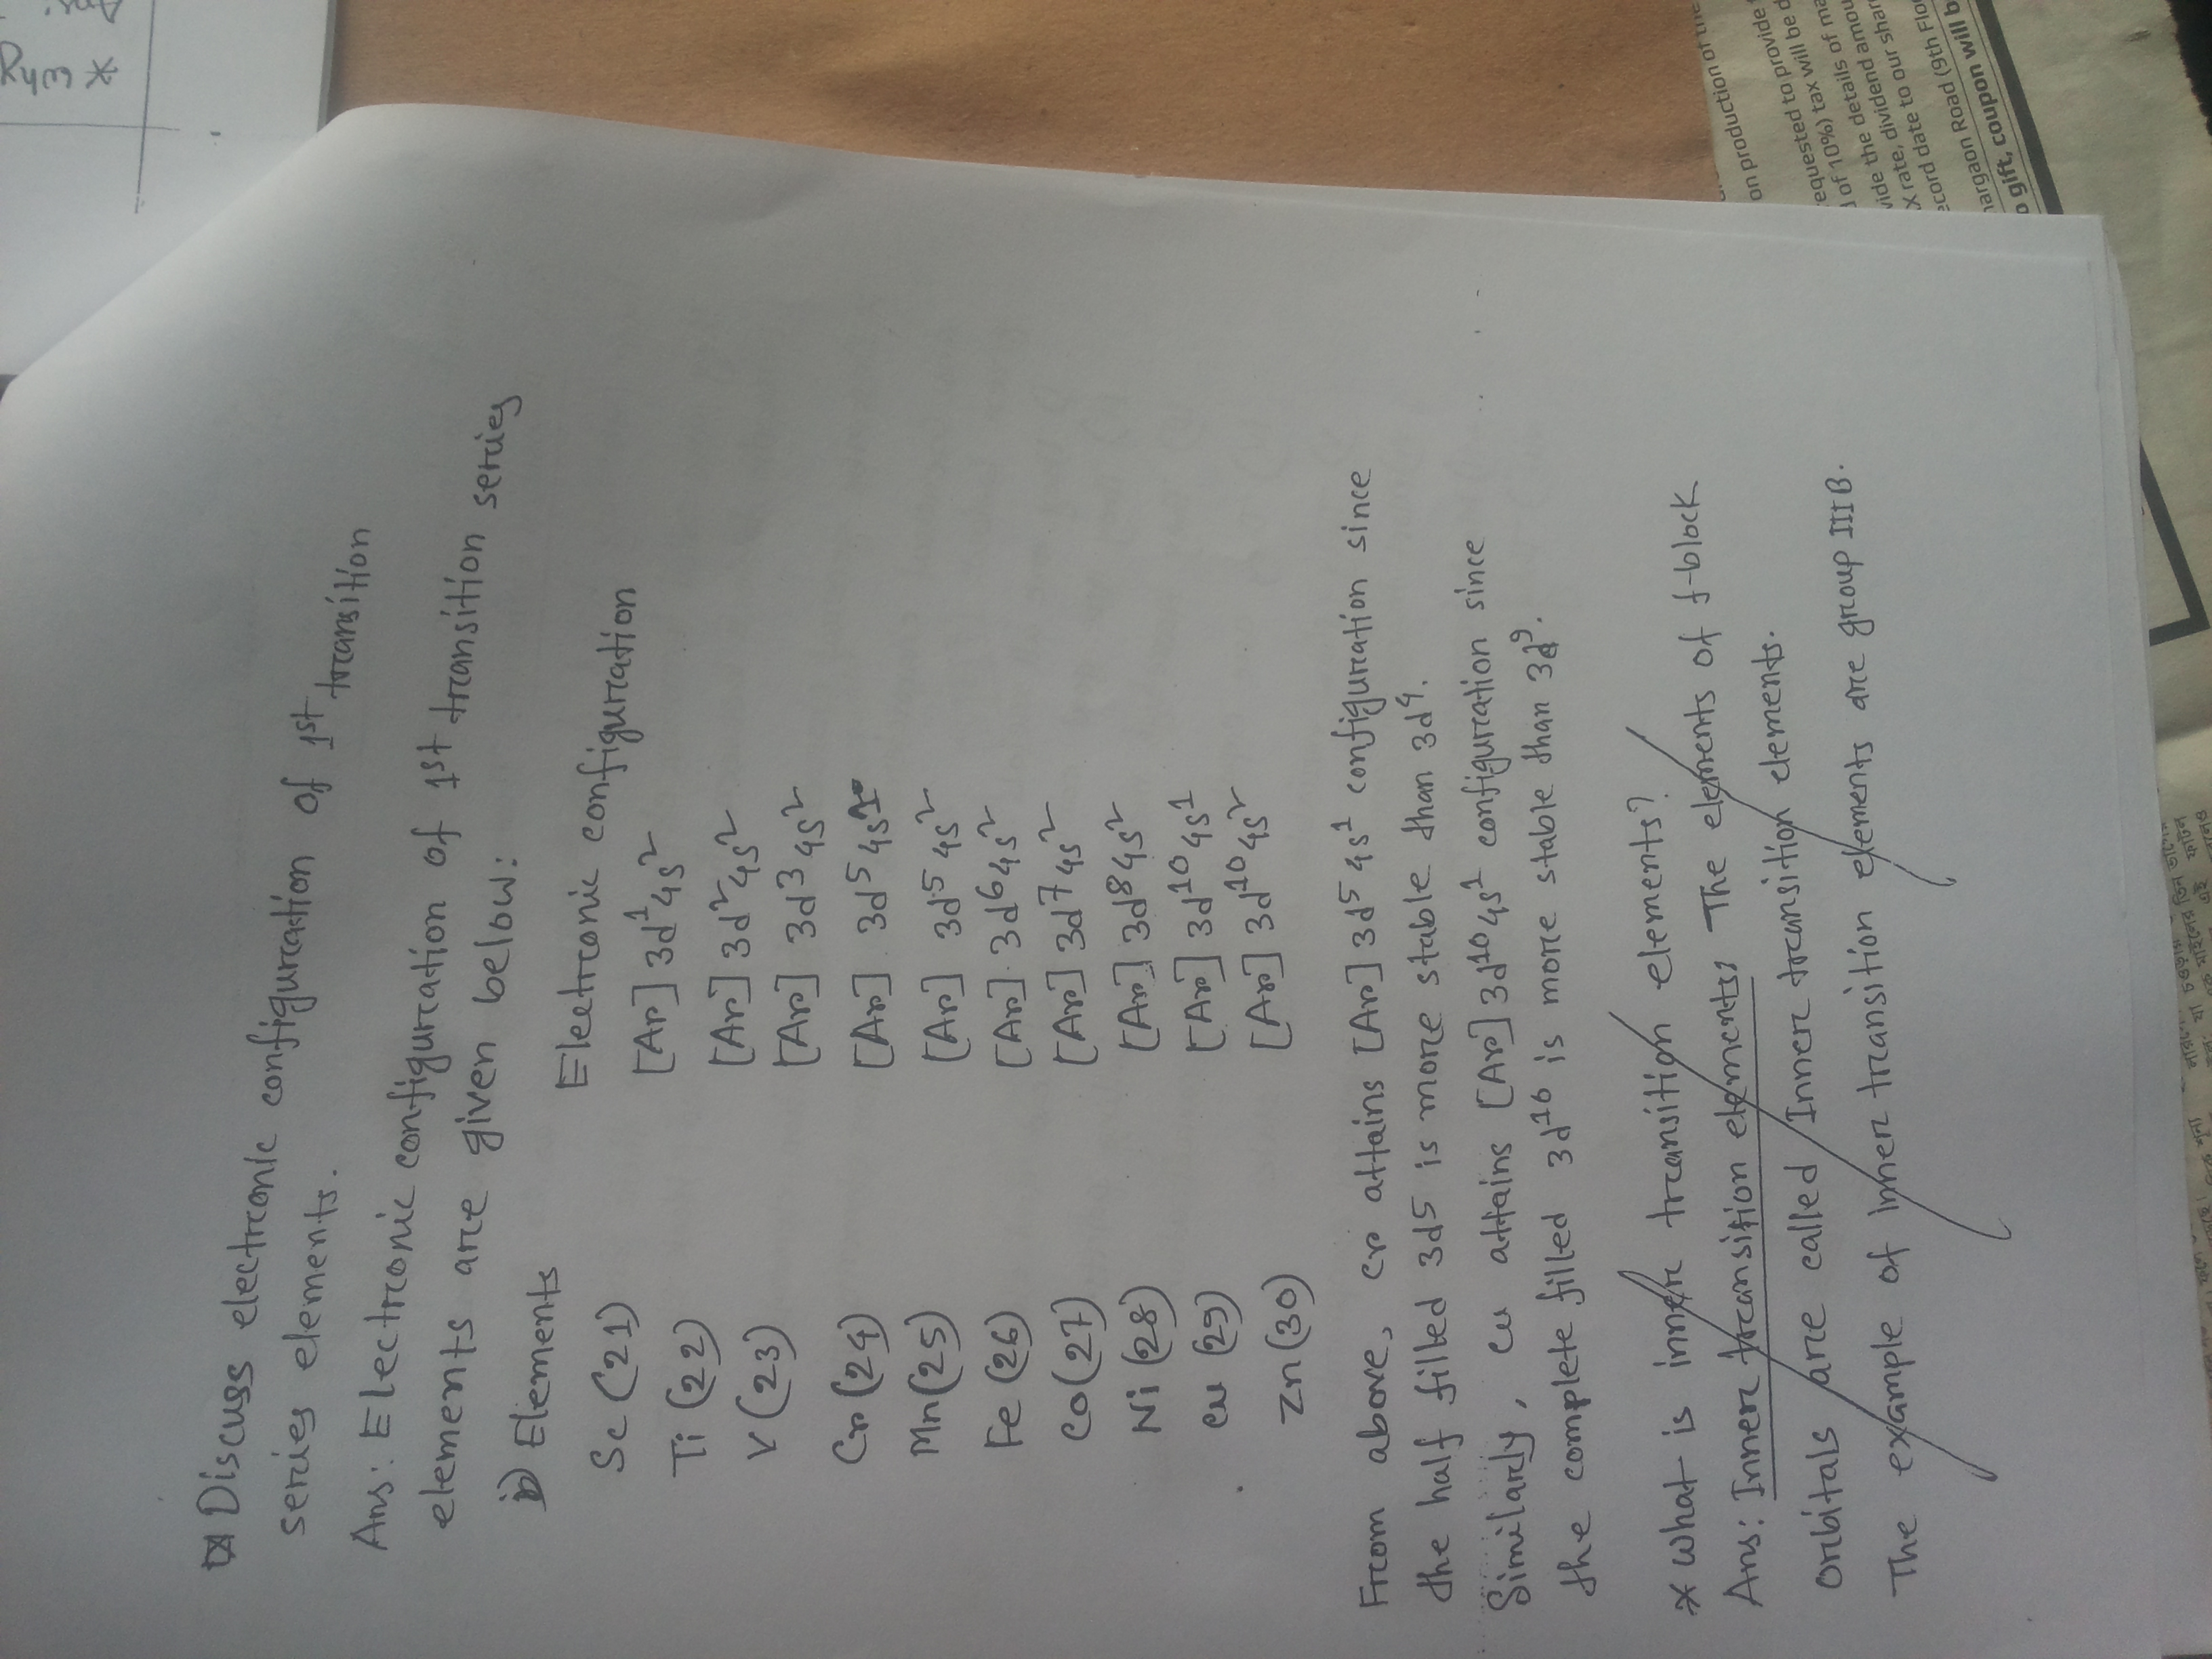 Discuss electronic configuration of 1st transition
series elements.
Ans: Electronic configuration of 1st transition series
elements are given below:
i) Elements Electronic configuration
Sc (21) [Ar] 3d¹4s²
Ti (22) [Ar] 3d²4s²
V (23) [Ar] 3d³4s²
Cr (24) [Ar] 3d⁵4s¹
Mn (25) [Ar] 3d⁵4s²
Fe (26) [Ar] 3d⁶4s²
Co (27) [Ar] 3d⁷4s²
Ni (28) [Ar] 3d⁸4s²
Cu (29) [Ar] 3d¹⁰4s¹
Zn (30) [Ar] 3d¹⁰4s²
From above, Cr attains [Ar] 3d⁵4s¹ configuration since
the half filled 3d5 is more stable than 3d⁴.
Similarly, Cu attains [Ar] 3d¹⁰4s¹ configuration since
the complete filled 3d¹⁰ is more stable than 3d⁹.
* What is inner transition elements?
Ans: Inner transition elements: The elements of f-block
orbitals are called Inner transition elements.
The example of inner transition elements are group IIIB.
on production of the
requested to provide
of 10%) tax will be
vide the details of
x rate, dividend amou
ecord date to our shar
nargaon Road (9th Flo
o gift, coupon will b